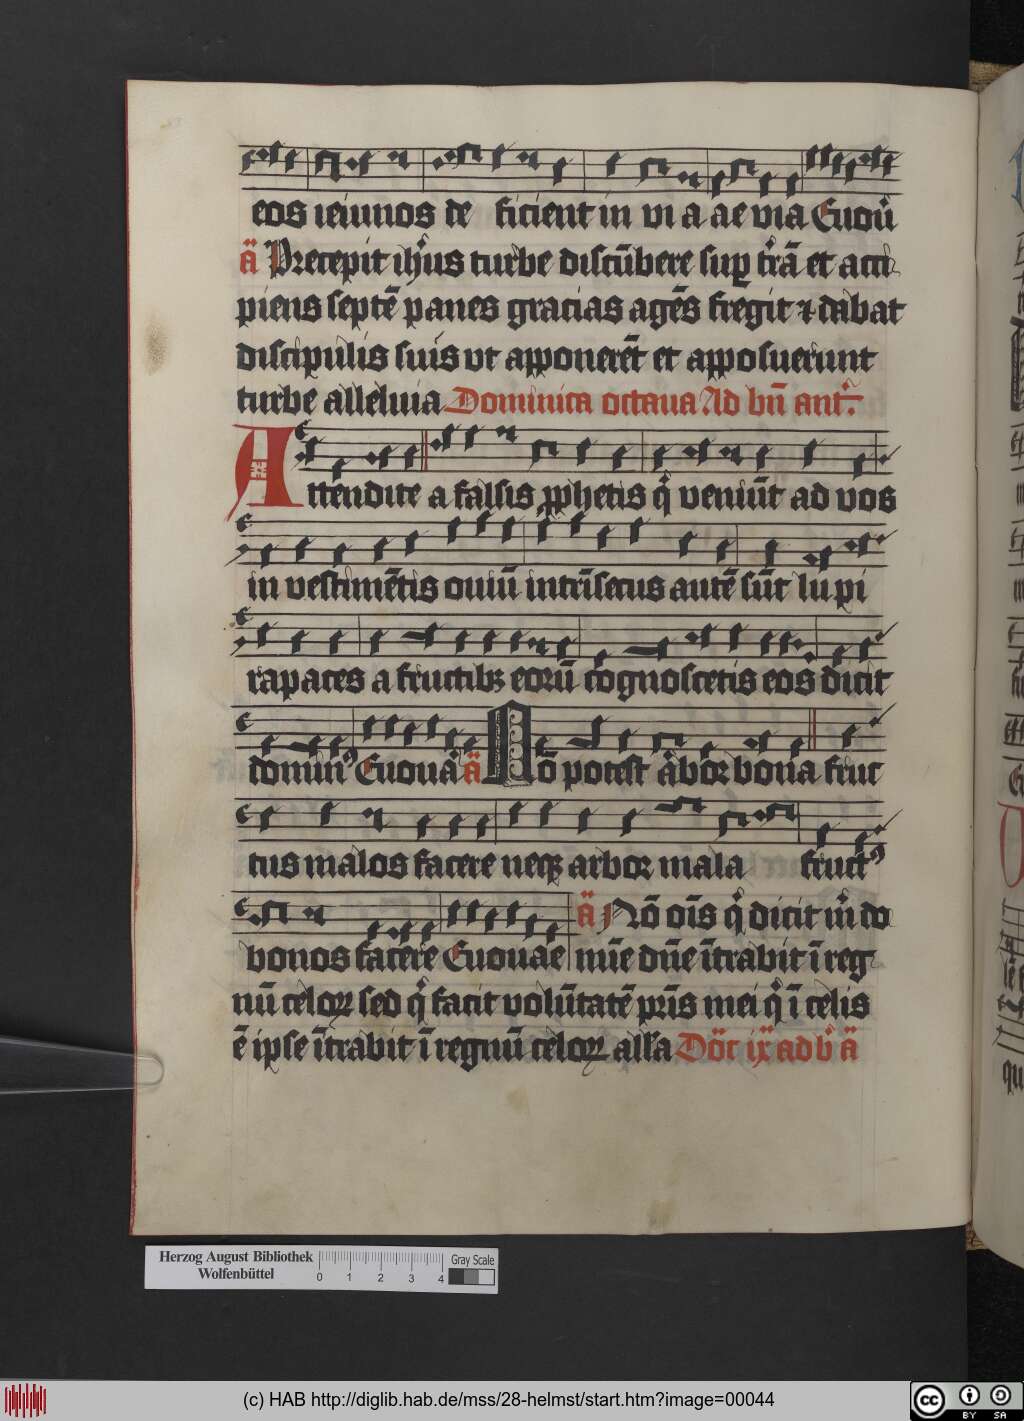 eos ieiunos de ficient in vi a ae via Euou̅
a̅ Precepit ih̅us turbe discu̅bere sup t̅ra̅ et acci
piens septe̅ panes gracias age̅s fregit ⁊ dabat
discipulis suis vt apponere̅t et apposuerunt
turbe alleluia Dominica octaua Ad bn̅ ant̅.
Attendite a falsis ꝓphetis q̅ veniu̅t ad vos
in vestime̅tis ouiu̅ intri̅secus aute̅ su̅t lu pi
rapaces a fructibꝫ eoru̅ cognoscetis eos dicit
domin̅ꝰ Euoua̅ a̅ No̅ potest a̅bor bona fruc
tus malos facere neqꝫ arbor mala fruct̅ꝰ
bonos facere Euouae
a̅ No̅ oi̅s q̅ dicit m̅ do
mi̅e dn̅e i̅trabit i̅ reg
nu̅ celoꝝ sed q̅ facit volu̅tate̅ pri̅s mei q̅ i̅ celis
e̅ ipse i̅trabit i̅ regnu̅ celoꝝ all̅a Do̅c ix ad b̅ a̅
Herzog August Bibliothek
Wolfenbüttel
0 1 2 3 4
Gray Scale
(c) HAB http://diglib.hab.de/mss/28-helmst/start.htm?image=00044
cc BY SA